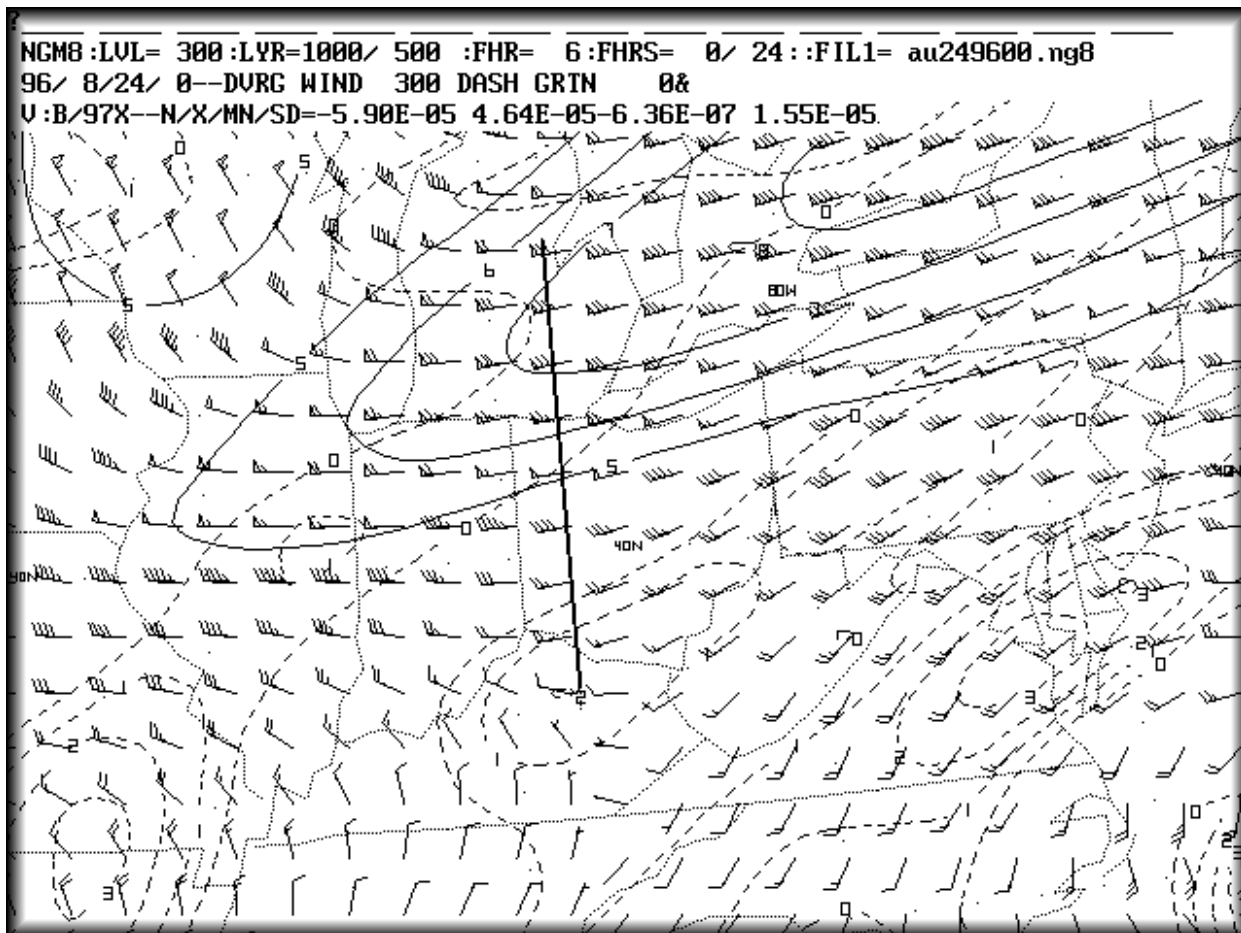 ?
NGM8:LVL= 300:LYR=1000/ 500 :FHR= 6:FHRS= 0/ 24::FIL1= au249600.ng8
96/ 8/24/ 0--DVRG WIND 300 DASH GRTN 0&
V:B/97X--N/X/MN/SD=-5.90E-05 4.64E-05-6.36E-07 1.55E-05
0
5
0
7
6
5
80W
5
0
0
0
5
40N
0
40N
40N
3
2
0
0
3
2
2
2
0
2
3
3
0